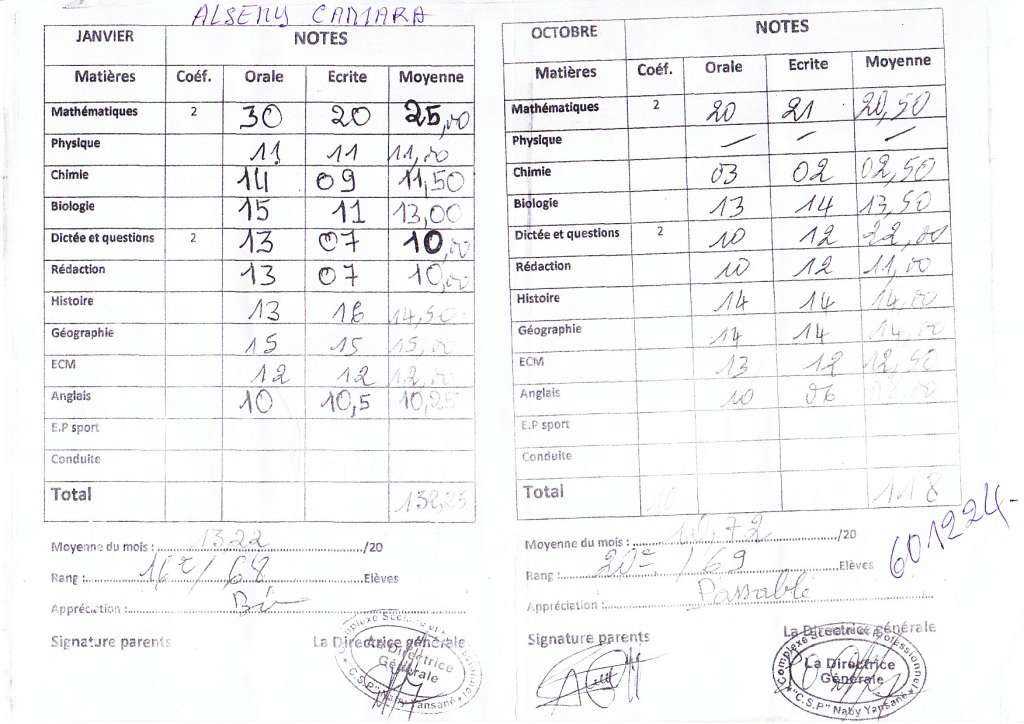 ALSENY CAMARA
JANVIER NOTES
Matières Coéf. Orale Ecrite Moyenne
Mathématiques 2 30 20 25,00
Physique 11 11 11,00
Chimie 14 09 11,50
Biologie 15 11 13,00
Dictée et questions 2 13 07 10,00
Rédaction 13 07 10,00
Histoire 13 16 14,50
Géographie 15 15 15,00
ECM 12 12 12,00
Anglais 10 10,5 10,25
E.P sport
Conduite
Total 132,25
Moyenne du mois : 13,22 /20
Rang : 16e / 68 Elèves
Appréciation : Bien
Signature parents La Directrice générale
Complexe Scolaire et Professionnel
La Directrice
Générale
"C.S.P" Naby Yansané
OCTOBRE NOTES
Matières Coéf. Orale Ecrite Moyenne
Mathématiques 2 20 21 20,50
Physique – – –
Chimie 03 02 02,50
Biologie 13 14 13,50
Dictée et questions 2 10 12 22,00
Rédaction 10 12 11,00
Histoire 14 14 14,00
Géographie 14 14 14,00
ECM 13 12 12,50
Anglais 10 06
E.P sport
Conduite
Total 118
Moyenne du mois : 10,72 /20
Rang : 20e / 69 Elèves
Appréciation : Passable
601224-
Signature parents La Directrice générale
Complexe Scolaire et Professionnel
La Directrice
Générale
"C.S.P" Naby Yansané